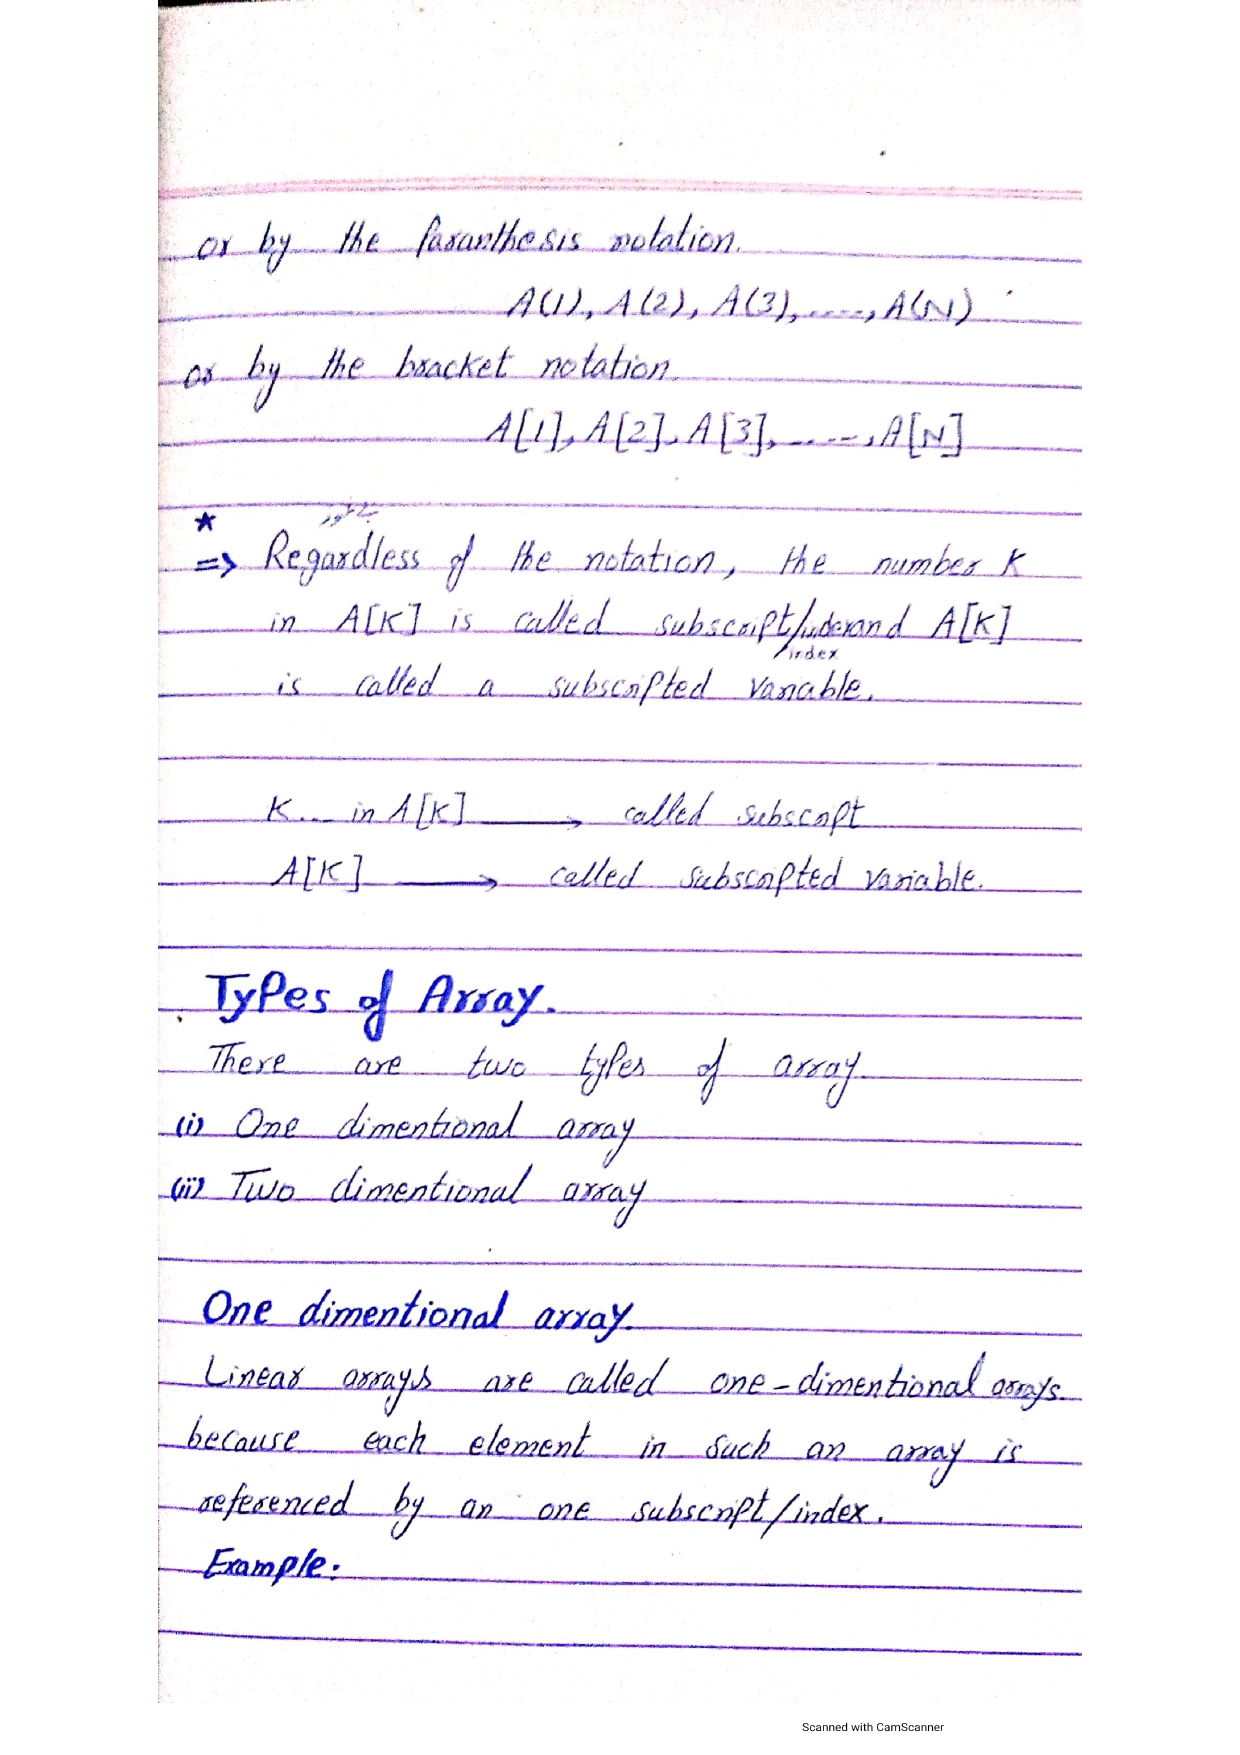 or by the Paranthesis notation.
A(1), A(2), A(3), ...., A(N)
or by the bracket notation.
A[1], A[2], A[3], ....., A[N]
*
=> Regardless of the notation, the number K
in A[K] is called subscript/ and A[K]
index
is called a subscripted variable.
K... in A[K] → called subscript
A[K] → called subscripted variable.
Types of Array.
There are two types of array
(i) One dimentional array
(ii) Two dimentional array
One dimentional array.
Linear arrays are called one-dimentional arrays
because each element in such an array is
referenced by an one subscript/index.
Example:
Scanned with CamScanner